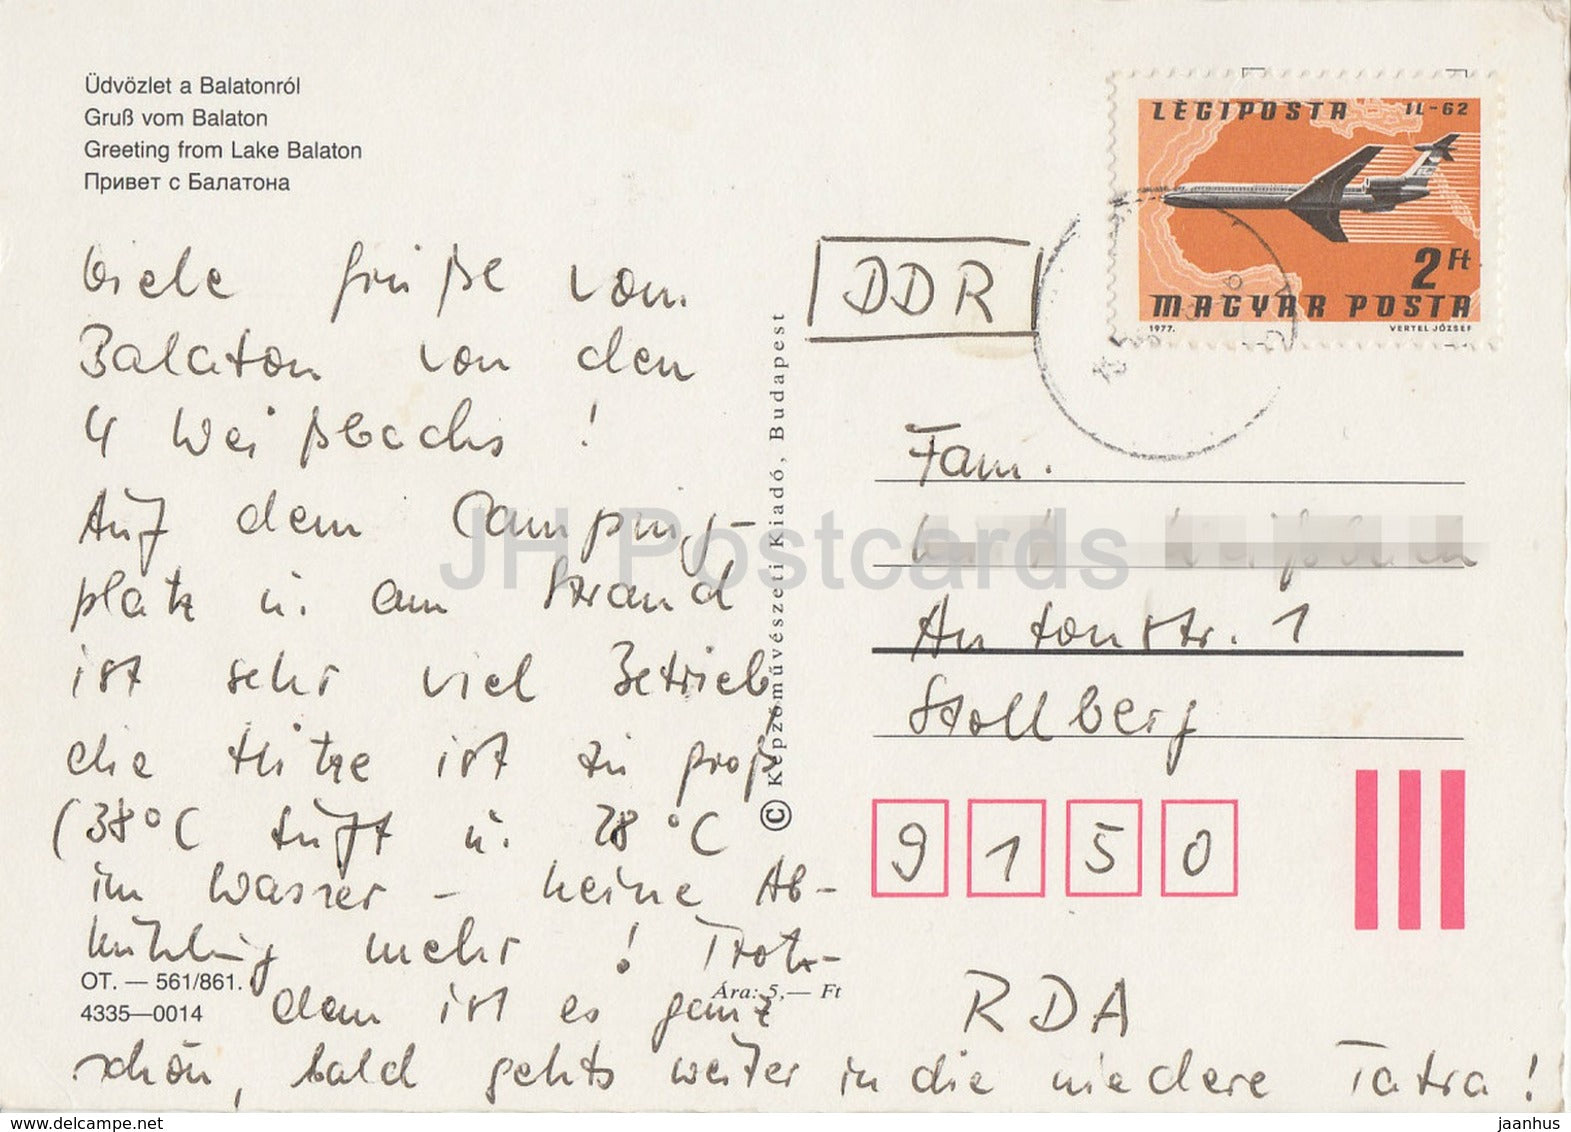 Üdvözlet a Balatonról
Gruß vom Balaton
Greeting from Lake Balaton
Привет с Балатона
LÉGIPOSTA IL-62
2 Ft
MAGYAR POSTA
1977. VERTEL JÓZSEF
DDR
Viele Grüße vom
Balaton von den
4 Weißbachs !
Auf dem Camping-
platz u. am Strand
ist sehr viel Betrieb
die Hitze ist zu groß
(38°C Luft u. 28°C
im Wasser - keine Ab-
kühlung mehr ! Trotz-
dem ist es ganz
schön, bald gehts weiter in die niedere Tatra !
© Képzőművészeti Kiadó, Budapest
Fam.
Antonstr. 1
Stollberg
9 1 5 0
RDA
OT. — 561/861.
4335—0014
Ára: 5,— Ft
JH Postcards
www.delcampe.net
jaanhus